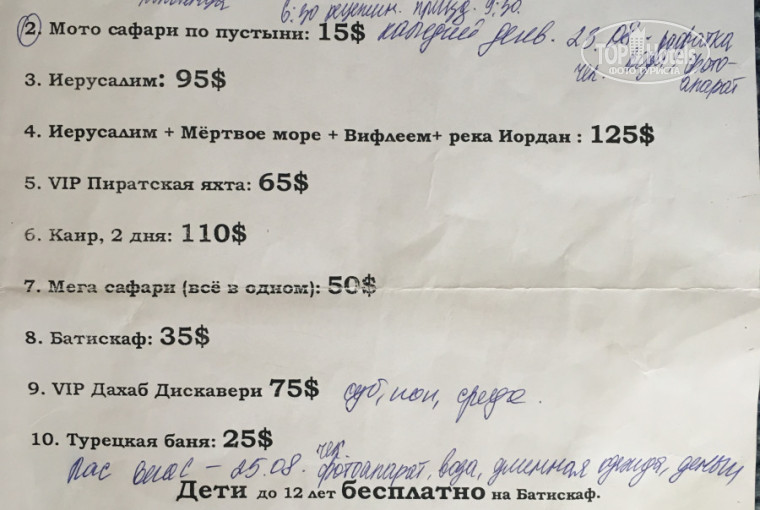 6:30 рецепшн. приезд. 9:30.
2. Мото сафари по пустыни: 15$ каждый день. 23.08 -
TOP Hotels
ФОТО ТУРИСТА
чел. фото-
апарат
3. Иерусалим: 95$
4. Иерусалим + Мёртвое море + Вифлеем+ река Иордан : 125$
5. VIP Пиратская яхта: 65$
6. Каир, 2 дня: 110$
7. Мега сафари (всё в одном): 50$
8. Батискаф: 35$
9. VIP Дахаб Дискавери 75$ суб, пон, среда.
10. Турецкая баня: 25$
чел.
- 25.08. фотоапарат, вода, длинная одежда, деньги
Дети до 12 лет бесплатно на Батискаф.